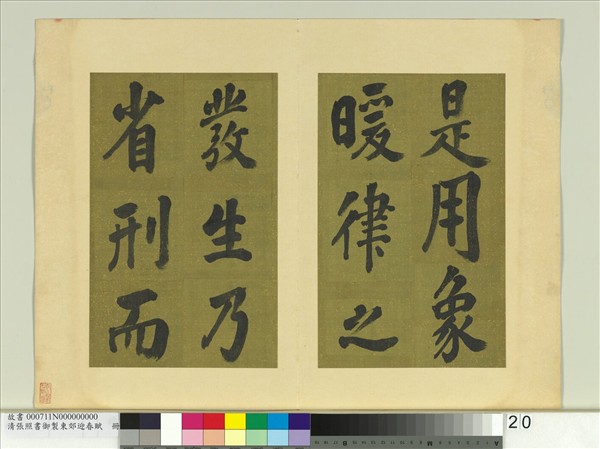 是用象
暖律之
發生乃
省刑而
故書 000711N000000000
清張照書御製東郊迎春賦 冊
20